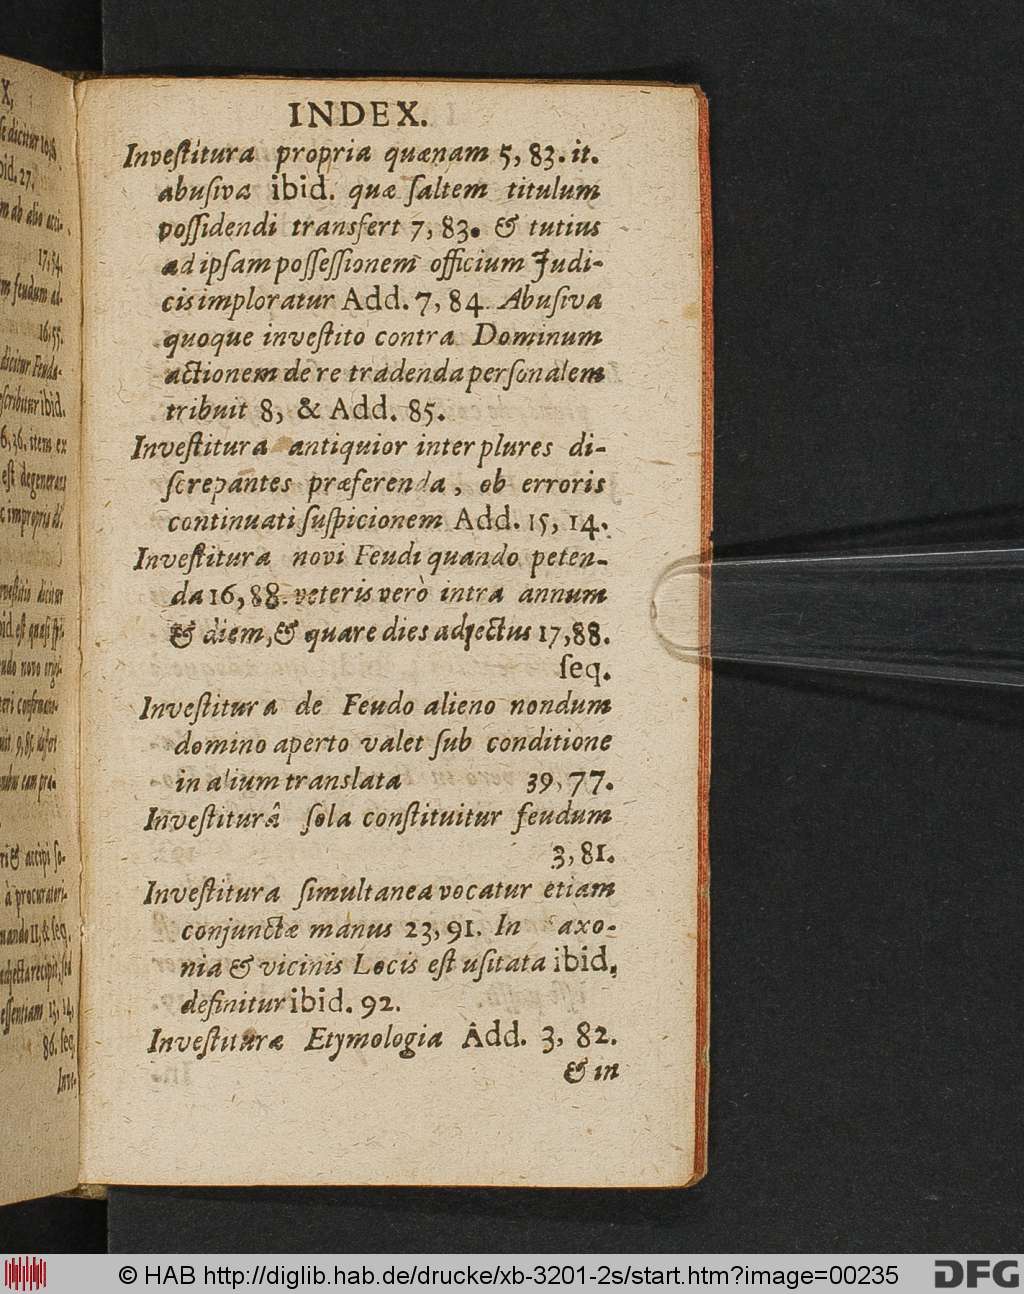 INDEX.
Inveſtitura propria quænam 5, 83. it.
abuſiva ibid. quæ ſaltem titulum
poſſidendi transfert 7, 83. & tutius
ad ipſam poſſeſſionem officium Judi-
cis imploratur Add. 7, 84. Abuſiva
quoque inveſtito contra Dominum
actionem de re tradenda perſonalem
tribuit 8, & Add. 85.
Inveſtitura antiquior inter plures di-
ſcrepantes præferenda, ob erroris
continuati ſuſpicionem Add. 15, 14.
Inveſtitura novi Feudi quando peten-
da 16, 88. veteris verò intra annum
& diem, & quare dies adjectus 17, 88.
ſeq.
Inveſtitura de Feudo alieno nondum
domino aperto valet ſub conditione
in alium translata 39, 77.
Inveſtiturâ ſola conſtituitur feudum
3, 81.
Inveſtitura ſimultanea vocatur etiam
conjunctæ manus 23, 91. In axo-
nia & vicinis Locis eſt uſitata ibid,
definitur ibid. 92.
Inveſtituræ Etymologia Add. 3, 82.
& in
X,
ibid. 27.
17, 54.
m feudum ad-
16, 55.
dicitur Feuda-
ſcribitur ibid.
6, 36, item ex
eſt degenerans
à procuratori-
eſſentiam 13, 14,
86. ſeq.
Inve-
© HAB http://diglib.hab.de/drucke/xb-3201-2s/start.htm?image=00235
DFG